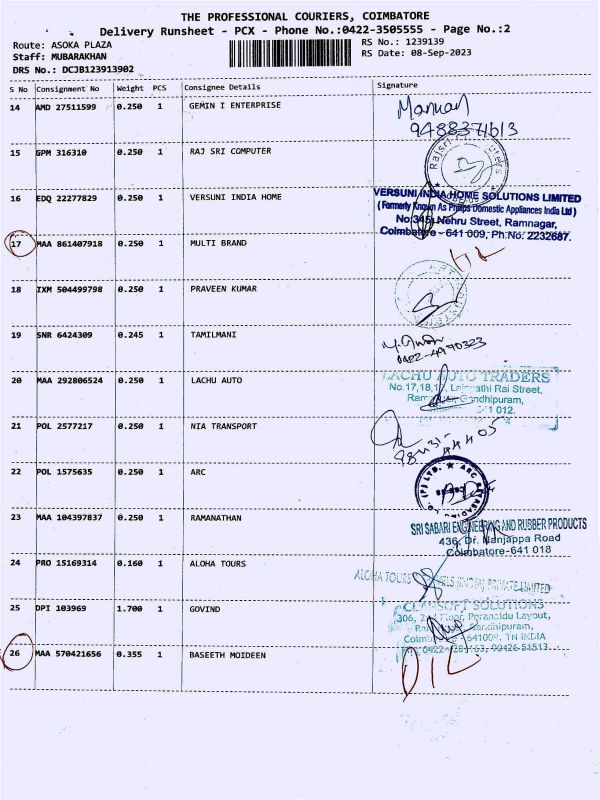 THE PROFESSIONAL COURIERS, COIMBATORE
Delivery Runsheet - PCX - Phone No.:0422-3505555 - Page No.:2
Route: ASOKA PLAZA
Staff: MUBARAKHAN
DRS No.: DCJB123913902
RS No.: 1239139
RS Date: 08-Sep-2023
S No Consignment No Weight PCS Consignee Details Signature
14 AMD 27511599 0.250 1 GEMIN I ENTERPRISE
9488371613
15 GPM 316310 0.250 1 RAJ SRI COMPUTER
16 EDQ 22277829 0.250 1 VERSUNI INDIA HOME
VERSUNI INDIA HOME SOLUTIONS LIMITED
(Formerly Known As Philips Domestic Appliances India Ltd)
No:345, Nehru Street, Ramnagar,
Coimbatore - 641 009, Ph.No: 2232687.
17 MAA 861407918 0.250 1 MULTI BRAND
18 IXM 504499798 0.250 1 PRAVEEN KUMAR
19 SNR 6424309 0.245 1 TAMILMANI
0422-4970323
20 MAA 292806524 0.250 1 LACHU AUTO
LACHU AUTO TRADERS
No.17,18,1 Rai Street,
Gandhipuram,
012.
21 POL 2577217 0.250 1 NIA TRANSPORT
22 POL 1575635 0.250 1 ARC
23 MAA 104397837 0.250 1 RAMANATHAN
SRI SABARI ENGINEERING AND RUBBER PRODUCTS
436, Dr. Nanjappa Road
Coimbatore-641 018
24 PRO 15169314 0.160 1 ALOHA TOURS
ALOHA TOURS (INDIA) PRIVATE LIMITED
25 DPI 103969 1.700 1 GOVIND
CLANSOFT SOLUTIONS
306, 2nd Floor, Peranaidu Layout,
Gandhipuram,
641009, TN INDIA
90426 51513
26 MAA 570421656 0.355 1 BASEETH MOIDEEN
DIL